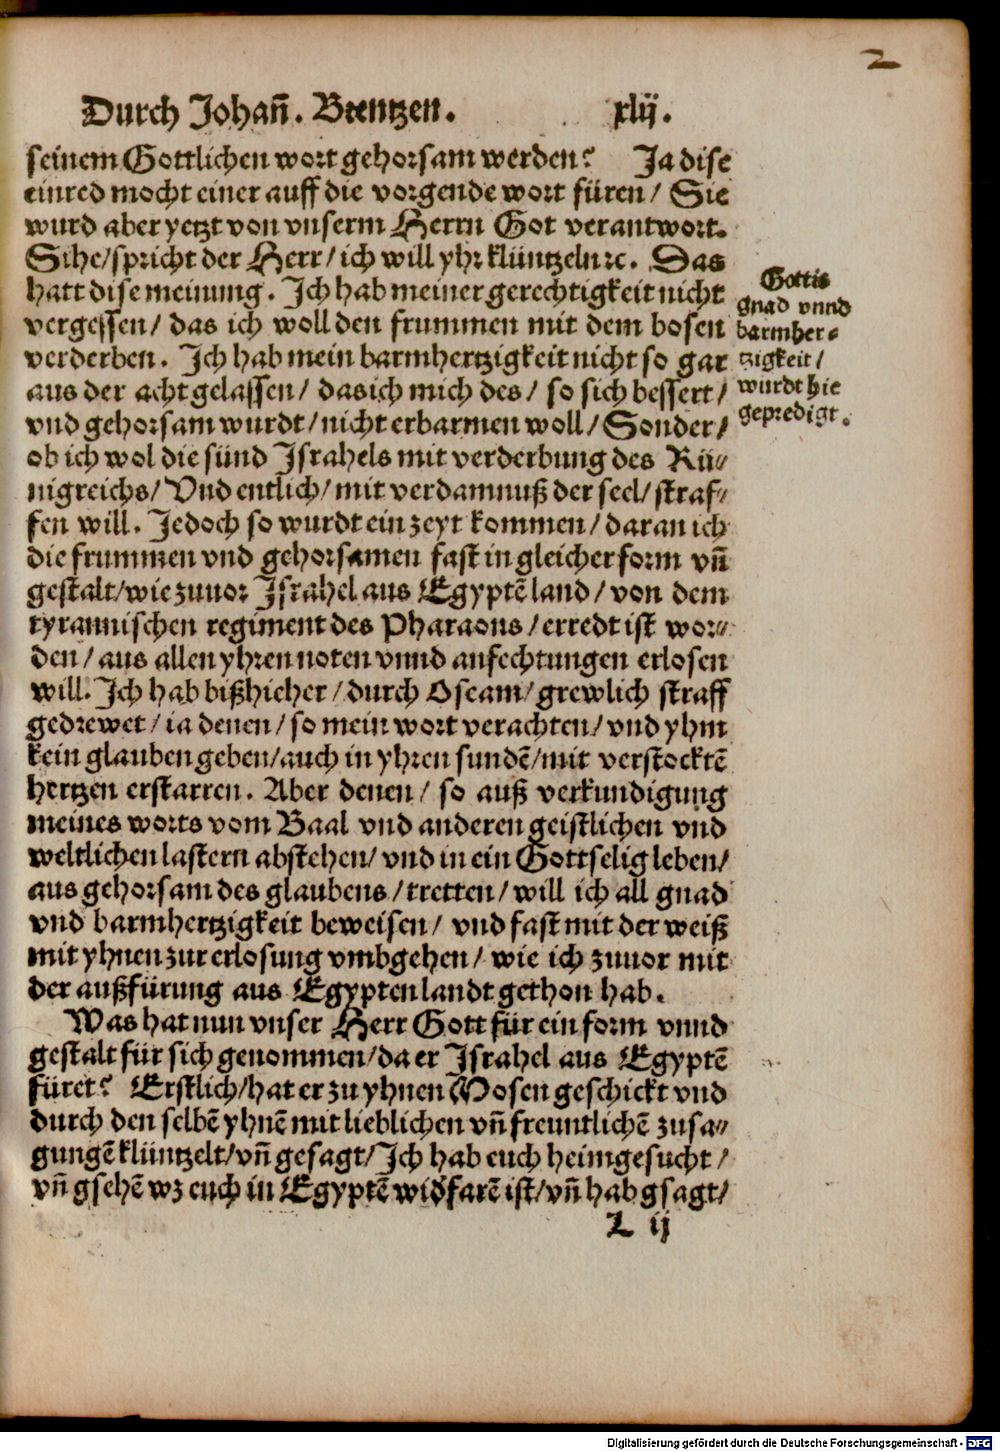 2
Durch Johañ. Brentzen. xlij.
seinem Gottlichen wort gehorsam werden? Ja dise
einred mocht einer auff die vorgende wort füren/ Sie
wurd aber yetzt von vnserm Herrn Got verantwort.
Sihe/spricht der Herr/ich will yhr klüntzeln ꝛc. Das
hatt dise meinung. Ich hab meiner gerechtigkeit nicht
vergessen/ das ich woll den frummen mit dem bosen
verderben. Ich hab mein barmhertzigkeit nicht so gar
aus der acht gelassen/ das ich mich des/ so sich bessert/
vnd gehorsam wurdt/nicht erbarmen woll/Sonder/
ob ich wol die sünd Israhels mit verderbung des Kü⸗
nigreichs/ Vnd entlich/mit verdamnuß der seel/straf⸗
fen will. Jedoch so wurdt ein zeyt kommen/daran ich
die frummen vnd gehorsamen fast in gleicher form vñ
gestalt/wie zuuor Israhel aus Egyptē land/von dem
tyrannischen regiment des Pharaons/erredt ist wor⸗
den/aus allen yhren noten vnnd anfechtungen erlosen
will. Ich hab bißhieher/durch Oseam/grewlich straff
gedrewet/ia denen/so mein wort verachten/vnd yhm
kein glauben geben/auch in yhren sundē/mit verstocktē
hertzen erstarren. Aber denen/ so auß verkundigung
meines worts vom Baal vnd anderen geistlichen vnd
weltlichen lastern abstehen/vnd in ein Gottselig leben/
aus gehorsam des glaubens/tretten/will ich all gnad
vnd barmhertzigkeit beweisen/ vnd fast mit der weiß
mit yhnen zur erlosung vmbgehen/ wie ich zuuor mit
der außfürung aus Egypten landt gethon hab.
Was hat nun vnser Herr Gott für ein form vnnd
gestalt für sich genommen/da er Israhel aus Egyptē
füret? Erstlich/hat er zu yhnen Mosen geschickt vnd
durch den selbē yhnē mit lieblichen vñ freuntlichē zusa⸗
gungē klüntzelt/vñ gesagt/Ich hab euch heimgesucht/
vñ gsehē wz euch in Egyptē widfarē ist/vñ hab gsagt/
L ij
Gottis
gnad vnnd
barmher⸗
tzigkeit/
wurdt hie
gepredigt.
Digitalisierung gefördert durch die Deutsche Forschungsgemeinschaft - DFG